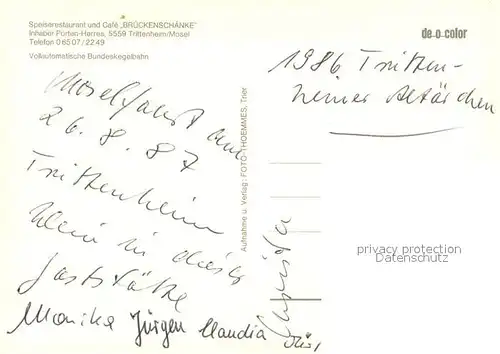 Speiserestaurant und Café „BRÜCKENSCHÄNKE"
Inhaber Pürten-Herres, 5559 Trittenheim/Mosel
Telefon 0 65 07 / 22 49
Vollautomatische Bundeskegelbahn
Moselfahrt am
26.8.87
Trittenheim
klein in dieser
Gaststätte
Monika Jürgen Claudia
Aufnahme u. Verlag: FOTO-THOEMMES, Trier
de-o-color
1986 Tritten-
heimer Altärchen
privacy protection
Datenschutz